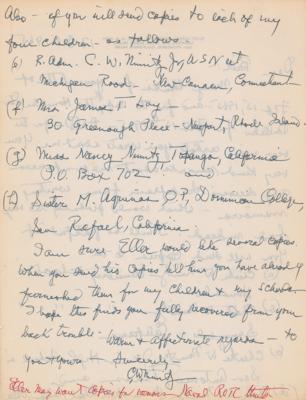 Also - if you will send copies to each of my
four children - as follows -
R. Adm. C. W. Nimitz Jr USN ret
Road - New Canaan, Connecticut
(f) Mrs James T. Lay -
30 Greenough Place - Newport, Rhode Island.
(g) Miss Nancy Nimitz, Topanga, California
P.O. Box 702 and
Sister M. Aquinas O.P., Dominican College,
San Rafael, California
I am sure Eller would like several copies
When you send his copies tell him you have already
furnished them for my children & my school.
I hope this finds your fully recovered from your
back trouble. Warm & affectionate regards - to
you & yours - Sincerely
CWNimitz
Eller may want copies for various Naval ROTC Units